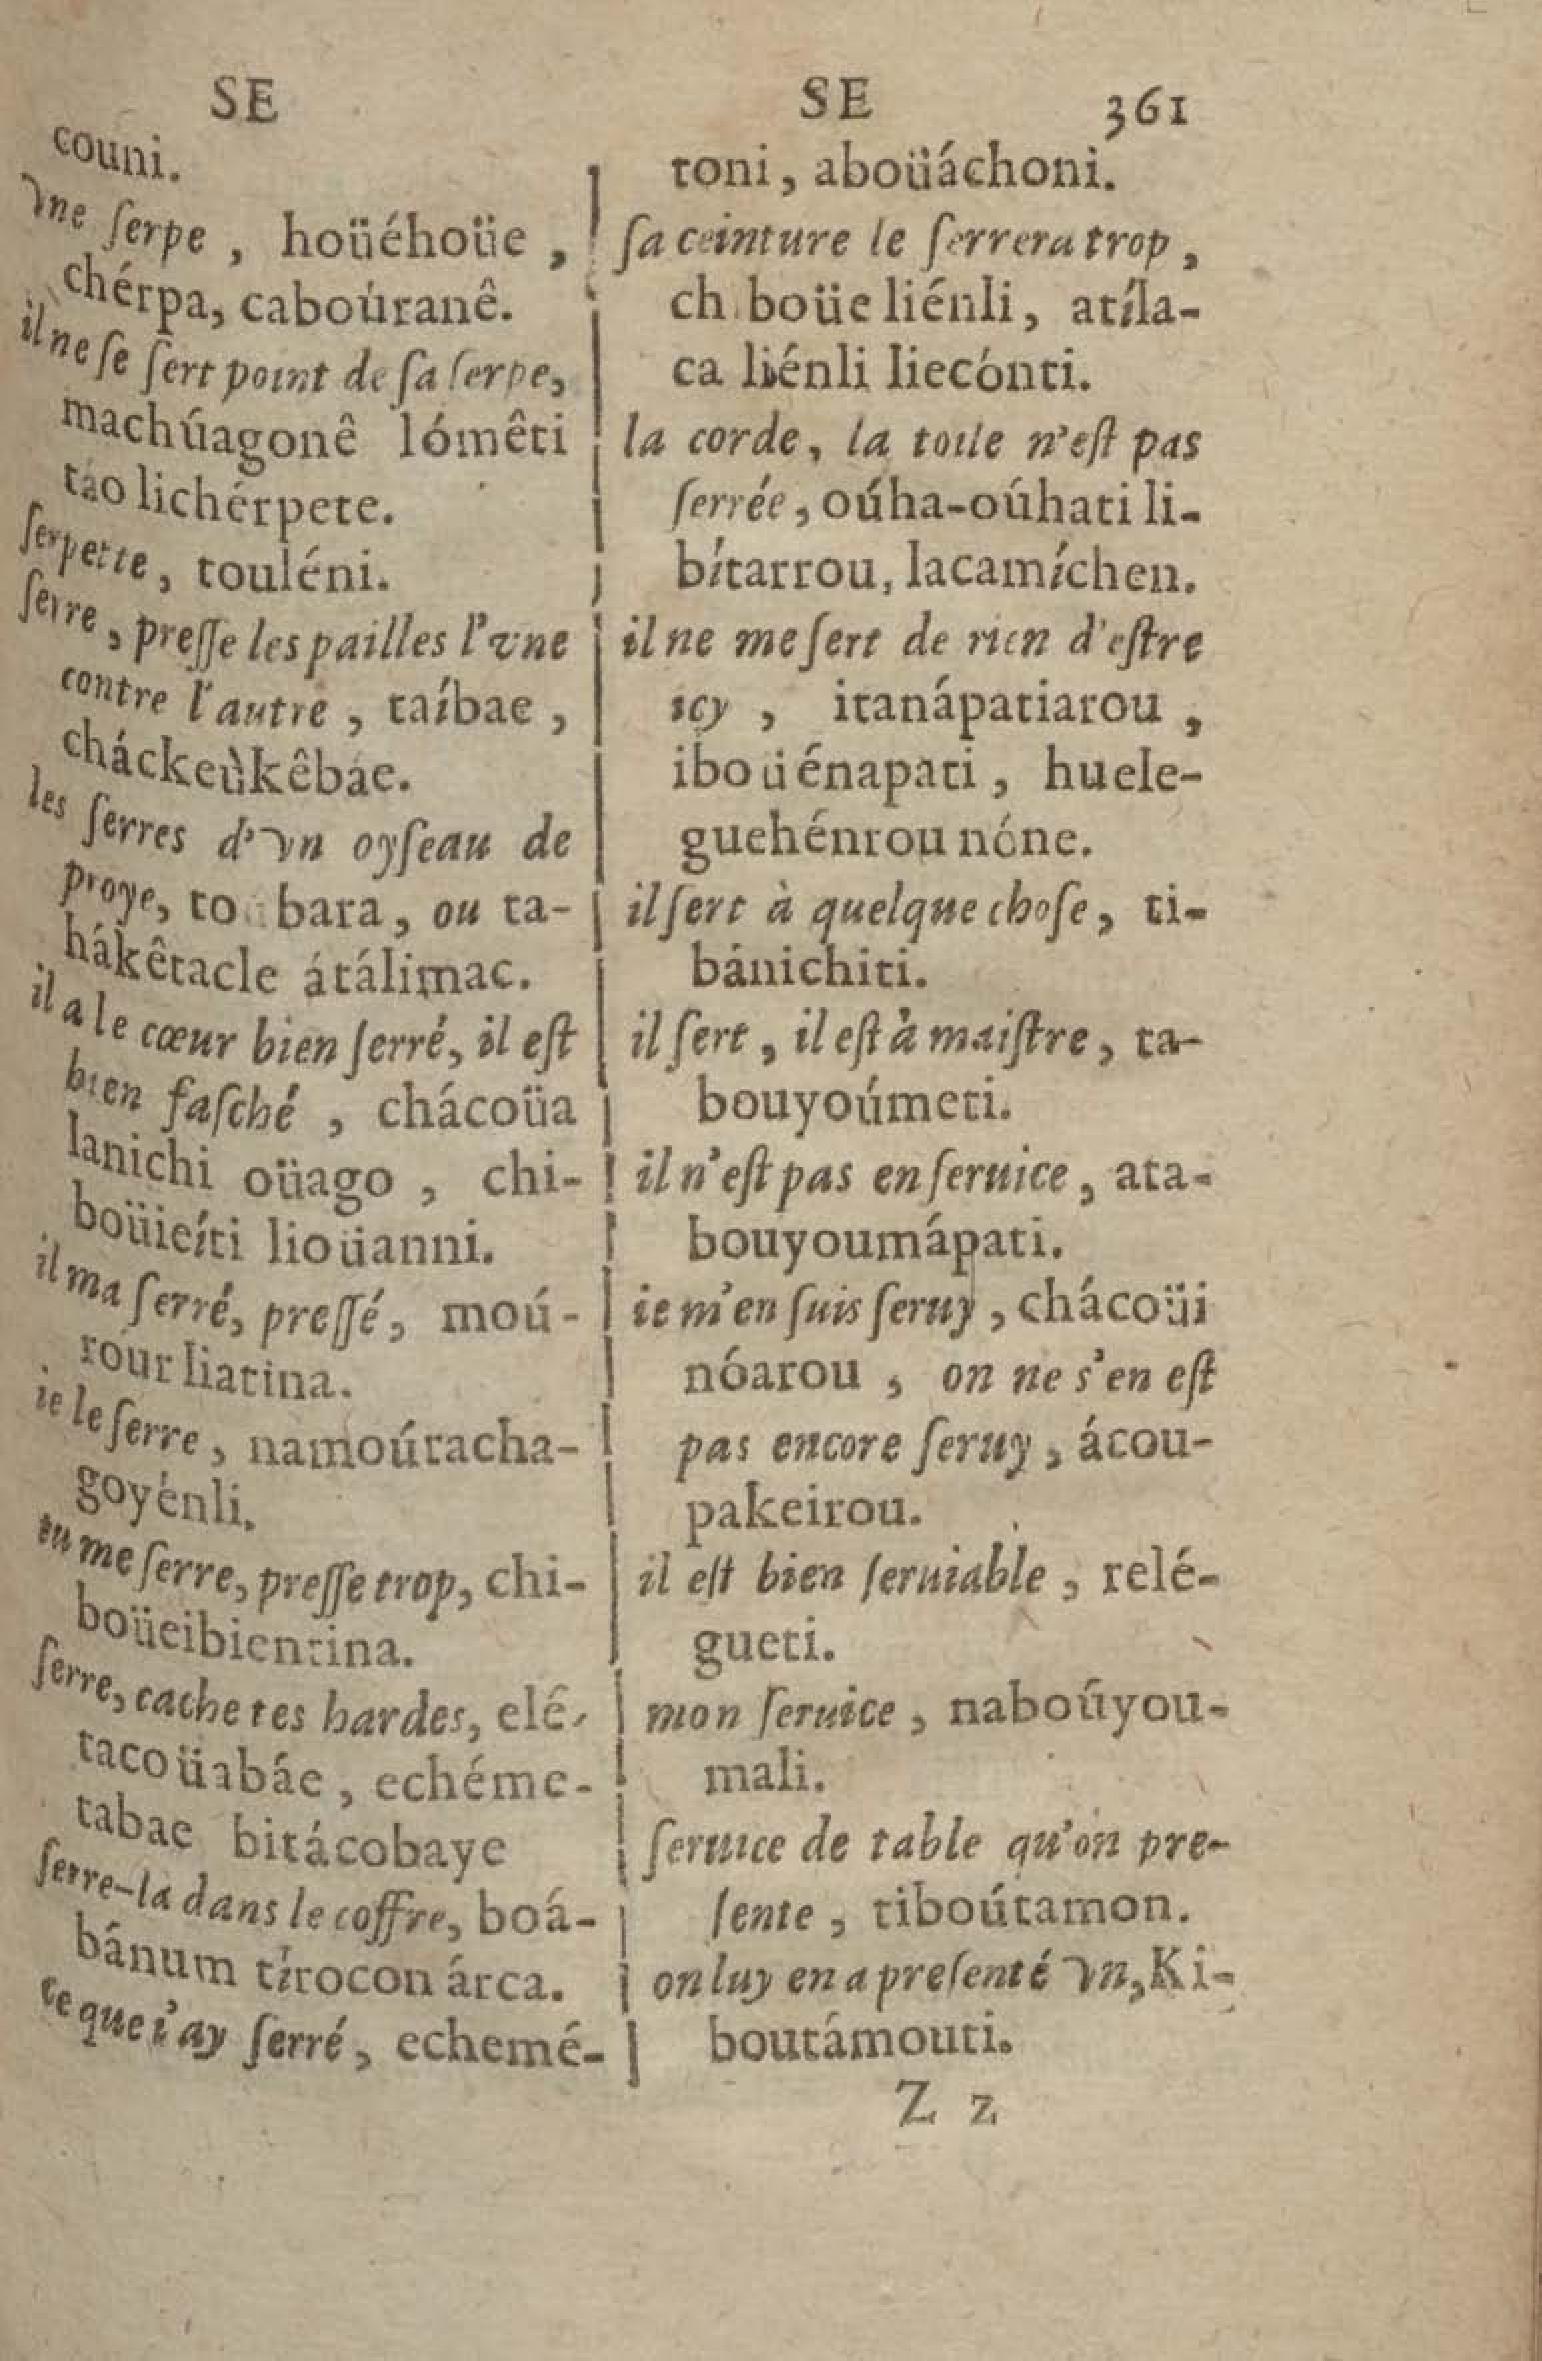 SE
couni.
vne ſerpe, hoüéhoüe,
chérpa, caboúranê.
il ne ſe ſert point de ſa ſerpe,
machúagonê lómêti
táo lichérpete.
ſerpette, touléni.
ſerre, preſſe les pailles l'vne
contre l'autre, taíbae,
cháckeùkêbáe.
les ſerres d'vn oyſeau de
proye, bara, ou ta-
hákêtacle átálimac.
il a le cœur bien ſerré, il eſt
bien faſché, chácoüa
lanichi oüago, chi-
boüieíti lioüanni.
il ma ſerré, preſſé, moú-
rour liatina.
ie le ſerre, namoúracha-
goyénli.
tu me ſerre, preſſe trop, chi-
boüeibientina.
ſerre, cache tes hardes, elé-
tacoüabáe, echéme-
tabae bitácobaye
ſerre-la dans le coffre, boá-
bánum tírocon árca.
ce que i'ay ſerré, echemé-
SE 361
toni, aboüáchoni.
ſa ceinture le ſerrera trop,
boüe liénli, atíla-
ca liénli liecónti.
la corde, la toile n'eſt pas
ſerrée, oúha-oúhati li-
bítarrou, lacamíchen.
il ne me ſert de rien d'eſtre
icy, itanápatiarou,
iboüénapati, huele-
guehénrou nóne.
il ſert à quelque choſe, ti-
bánichiti.
il ſert, il eſt à maiſtre, ta-
bouyoúmeti.
il n'eſt pas en ſeruice, ata-
bouyoumápati.
ie m'en ſuis ſeruy, chácoüi
nóarou, on ne s'en eſt
pas encore ſeruy, ácou-
pakeirou.
il eſt bien ſeruiable, relé-
gueti.
mon ſeruice, naboúyou-
mali.
ſeruice de table qu'on pre-
ſente, tiboútamon.
on luy en a preſenté vn, Ki-
boutámouti.
Z z